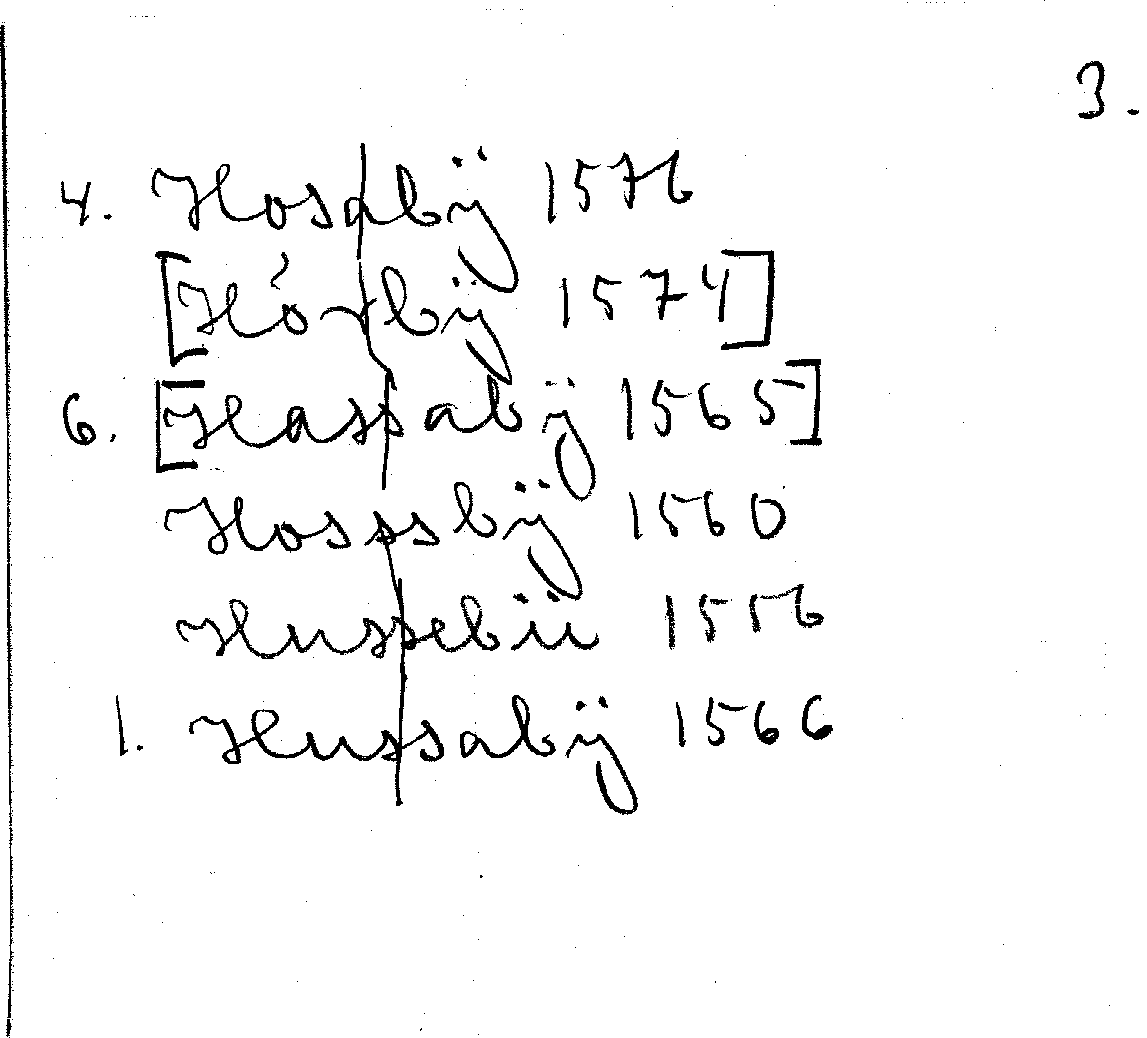 3.
4. Hosabÿ 1576
[Hórbÿ 1574]
6. [Hassabÿ 1565]
Hosssbÿ 1560
Hussebü 1556
1. Hussabÿ 1566